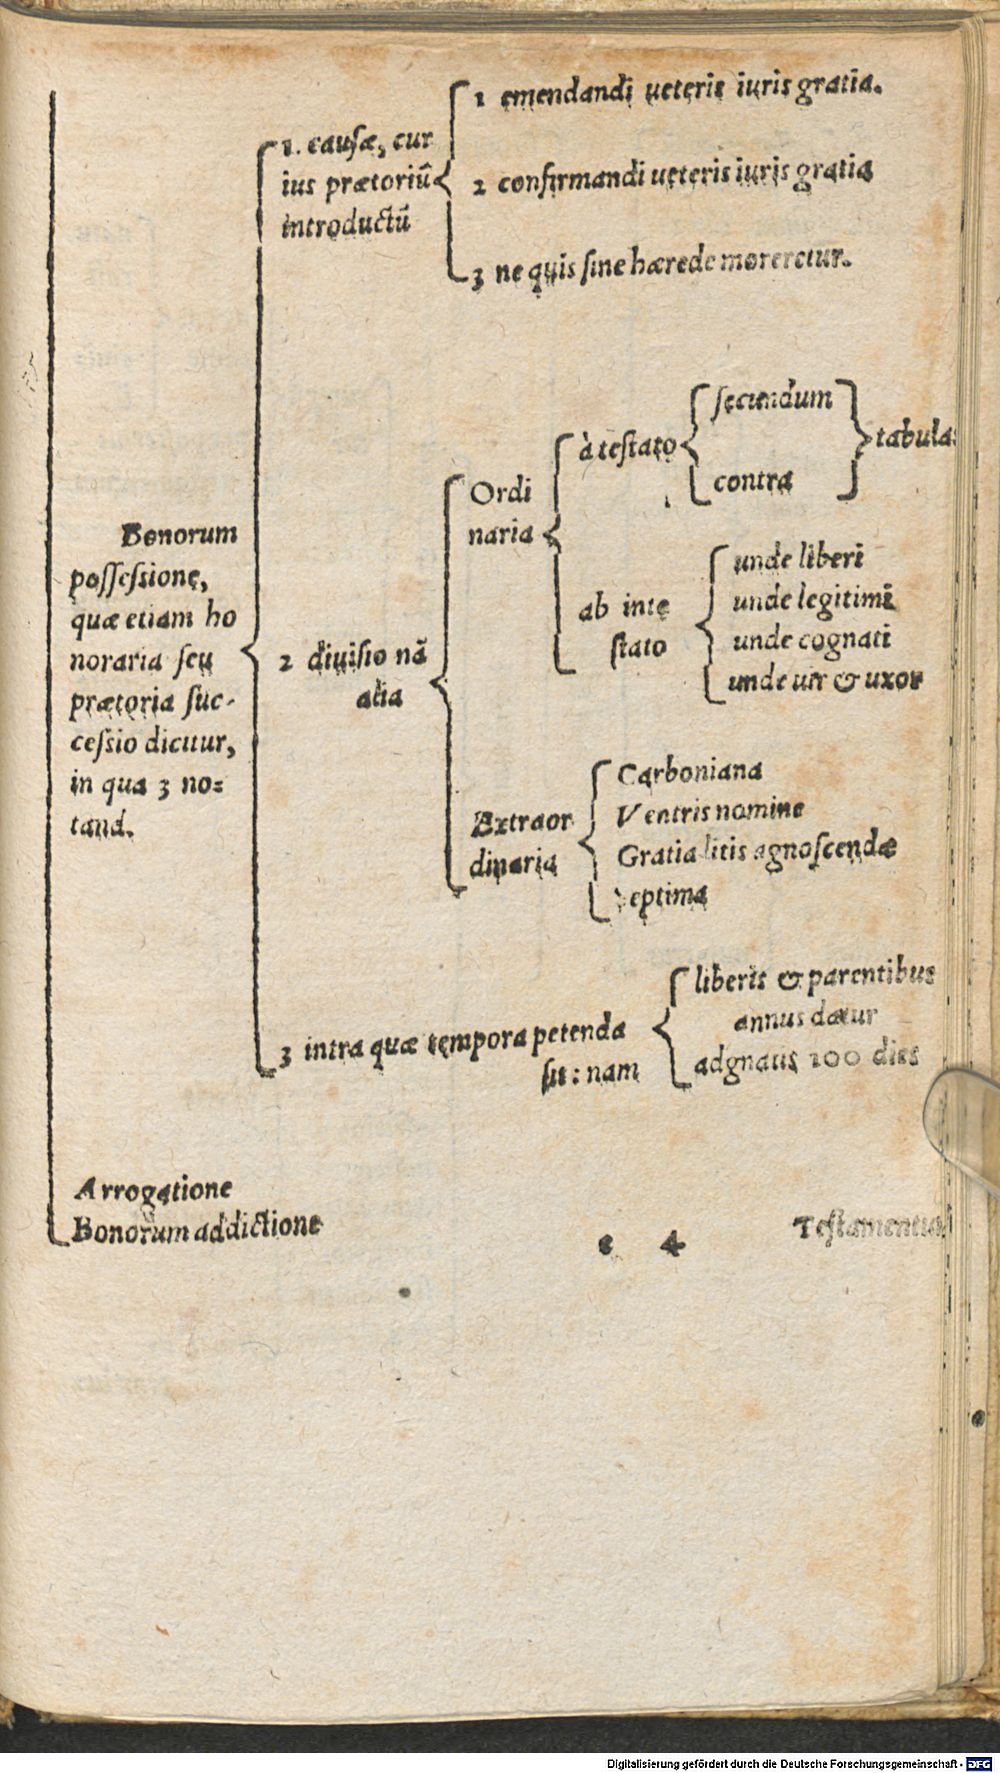 1 emendandi ueteris iuris gratia.
1. causæ, cur
ius prætoriū
introductū
2 confirmandi ueteris iuris gratia
3 ne quis ſine hærede moreretur.
Bonorum
poſſeſsione,
quæ etiam ho
noraria ſeu
prætoria ſuc-
ceſsio dicitur,
in qua 3 no=
tand.
2 diuiſio nā
alia
Ordi
naria
à teſtato
ſecundum
contra
tabulas
ab inte
ſtato
unde liberi
unde legitimi
unde cognati
unde uir & uxor
Extraor
dinaria
Carboniana
Ventris nomine
Gratia litis agnoſcendæ
eptima
3 intra quæ tempora petenda
ſit: nam
liberis & parentibus
annus datur
adgnatis 100 dies
Arrogatione
Bonorum addictione
e 4
Teſtamentia
Digitalisierung gefördert durch die Deutsche Forschungsgemeinschaft - DFG